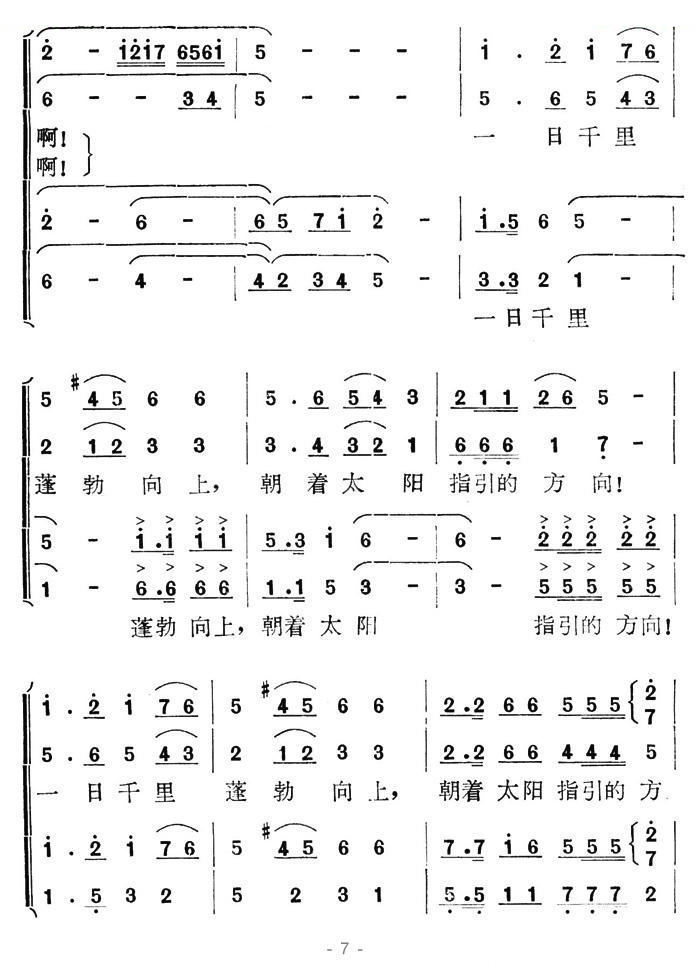 2̇ - 1̇2̇1̇7 6561̇ | 5 - - - | 1̇ . 2̇ 1̇ 7 6
6 - - 3 4 | 5 - - - | 5 . 6 5 4 3
啊! 一 日千里
啊!
2̇ - 6 - | 6 5 7 1̇ 2̇ - | 1̇ . 5 6 5 -
6 - 4 - | 4 2 3 4 5 - | 3 . 3 2 1 -
一日千里
5 #4 5 6 6 | 5 . 6 5 4 3 | 2 1 1 2 6 5 -
2 1 2 3 3 | 3 . 4 3 2 1 | 6̣ 6̣ 6̣ 1 7̣ -
蓬 勃 向 上, 朝 着 太 阳 指引的 方 向!
5 - 1̇ . 1̇ 1̇ 1̇ | 5 . 3 1̇ 6 - | 6 - 2̇ 2̇ 2̇ 2̇ 2̇
1 - 6 . 6 6 6 | 1 . 1 5 3 - | 3 - 5 5 5 5 5
蓬勃 向上, 朝着 太 阳 指引的 方向!
1̇ . 2̇ 1̇ 7 6 | 5 #4 5 6 6 | 2 . 2 6 6 5 5 5 { 2̇ 7
5 . 6 5 4 3 | 2 1 2 3 3 | 2 . 2 6 6 4 4 4 5
一 日千里 蓬 勃 向 上, 朝着 太阳 指引的 方
1̇ . 2̇ 1̇ 7 6 | 5 #4 5 6 6 | 7 . 7 1̇ 6 5 5 5 { 2̇ 7
1 . 5̣ 3 2 | 5 2 3 1 | 5̣ . 5̣ 1 1 7̣ 7̣ 7̣ 2
- 7 -